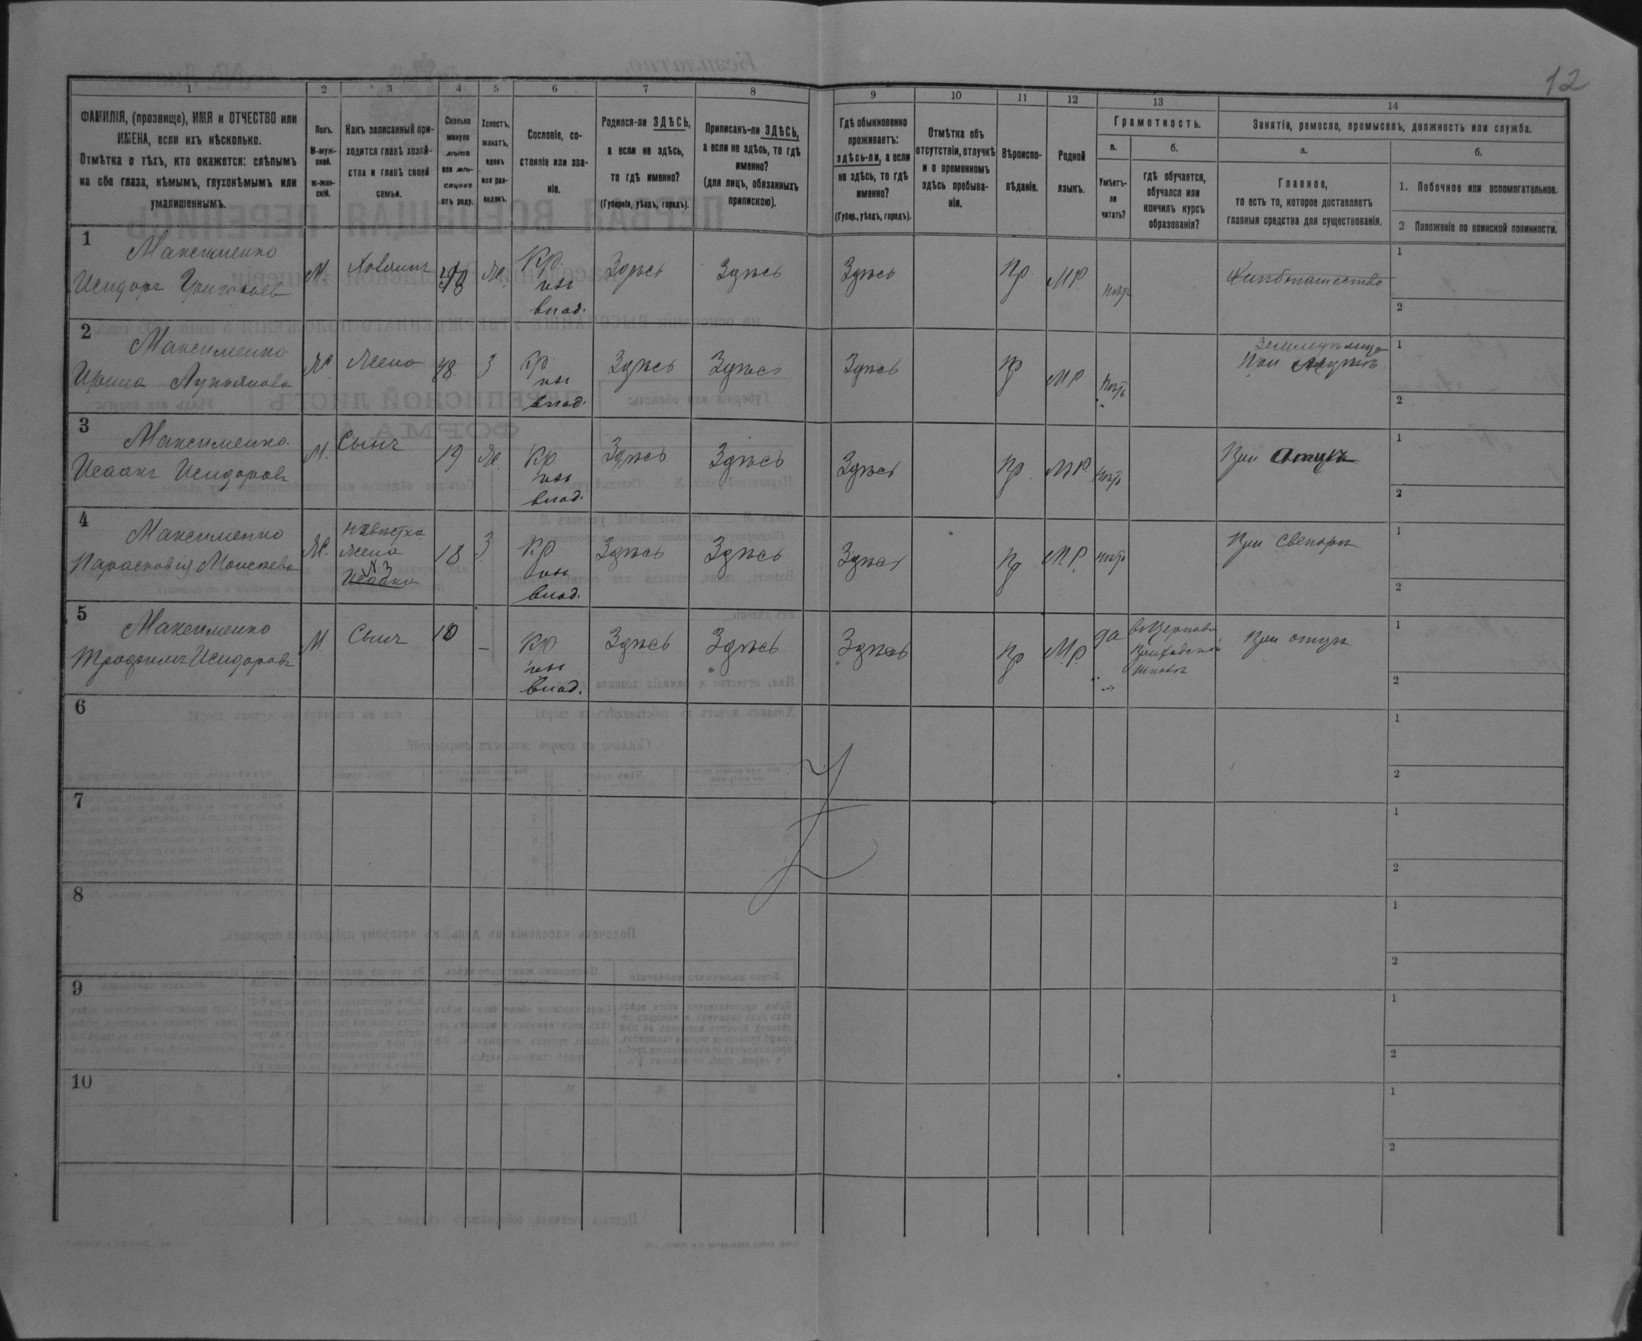 12
1 2 3 4 5 6 7 8 9 10 11 12 13 14
ФАМИЛІЯ, (прозвище), ИМЯ и ОТЧЕСТВО или
ИМЕНА, если ихъ нѣсколько.
Отмѣтка о тѣхъ, кто окажется: слѣпымъ
на оба глаза, нѣмымъ, глухонѣмымъ или
умалишеннымъ.
Полъ.
М-муж-
ской.
ж-жен-
скій.
Какъ записанный при-
ходится главѣ хозяй-
ства и главѣ своей
семьи.
Сколько
минуло
лѣтъ
или мѣ-
сяцевъ
отъ роду.
Холостъ,
женатъ,
вдовъ
или раз-
веденъ.
Сословіе, со-
стояніе или зва-
ніе.
Родился-ли ЗДѢСЬ,
а если не здѣсь,
то гдѣ именно?
(Губернія, уѣздъ, городъ).
Приписанъ-ли ЗДѢСЬ,
а если не здѣсь, то гдѣ
именно?
(для лицъ, обязанныхъ
припискою).
Гдѣ обыкновенно
проживаетъ:
здѣсь-ли, а если
не здѣсь, то гдѣ
именно?
(Губер., уѣздъ, городъ).
Отмѣтка объ
отсутствіи, отлучкѣ
и о временномъ
здѣсь пребыва-
ніи.
Вѣроиспо-
вѣданіе.
Родной
языкъ.
Грамотность.
а.
Умѣетъ-
ли
читать?
б.
гдѣ обучается,
обучался или
кончилъ курсъ
образованія?
Занятіе, ремесло, промыселъ, должность или служба.
а.
Главное,
то есть то, которое доставляетъ
главныя средства для существованія.
б.
1. Побочное или вспомогательное.
2 Положеніе по воинской повинности.
1
Максименко
Исидоръ Григорьевъ
М
Хозяинъ
48
Же.
Кр.
изъ
влад.
Здѣсь
Здѣсь
Здѣсь
Пр.
МР.
нѣтъ
Хлѣбопашество
1
2
2
Максименко
Ирина Лукьянова
Ж.
Жена
48.
З
Кр
изъ
влад.
Здѣсь
Здѣсь
Здѣсь
Пр
МР
нѣтъ
При мужѣ
1
2
3
Максименко
Исаакъ Исидоровъ
М.
Сынъ
19
Же.
Кр.
изъ
влад.
Здѣсь
Здѣсь
Здѣсь
Пр.
МР
нѣтъ
При отцѣ
1
2
4
Максименко
Парасковія Моисѣева
Ж.
невѣстка
жена
N 3
18
З
Кр
изъ
влад.
Здѣсь
Здѣсь
Здѣсь
Пр
МР.
нѣтъ
При свекорѣ
1
2
5
Максименко
Трофимъ Исидоровъ
М
Сынъ
10
—
Кр
изъ
влад.
Здѣсь
Здѣсь
Здѣсь
Пр
М.Р.
да
въ Церковно
Приходской
школѣ
При отцѣ
1
2
6
1
2
7
1
2
8
1
2
9
1
2
10
1
2